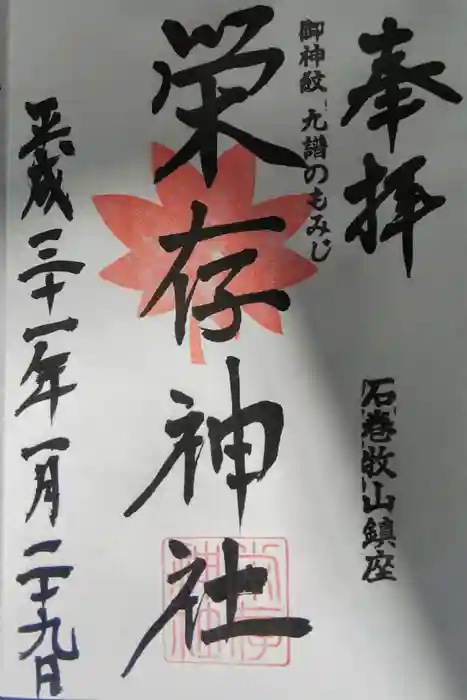 奉拝
石巻牧山鎮座
御神紋 九譜のもみじ
栄存神社
平成三十一年一月二十九日